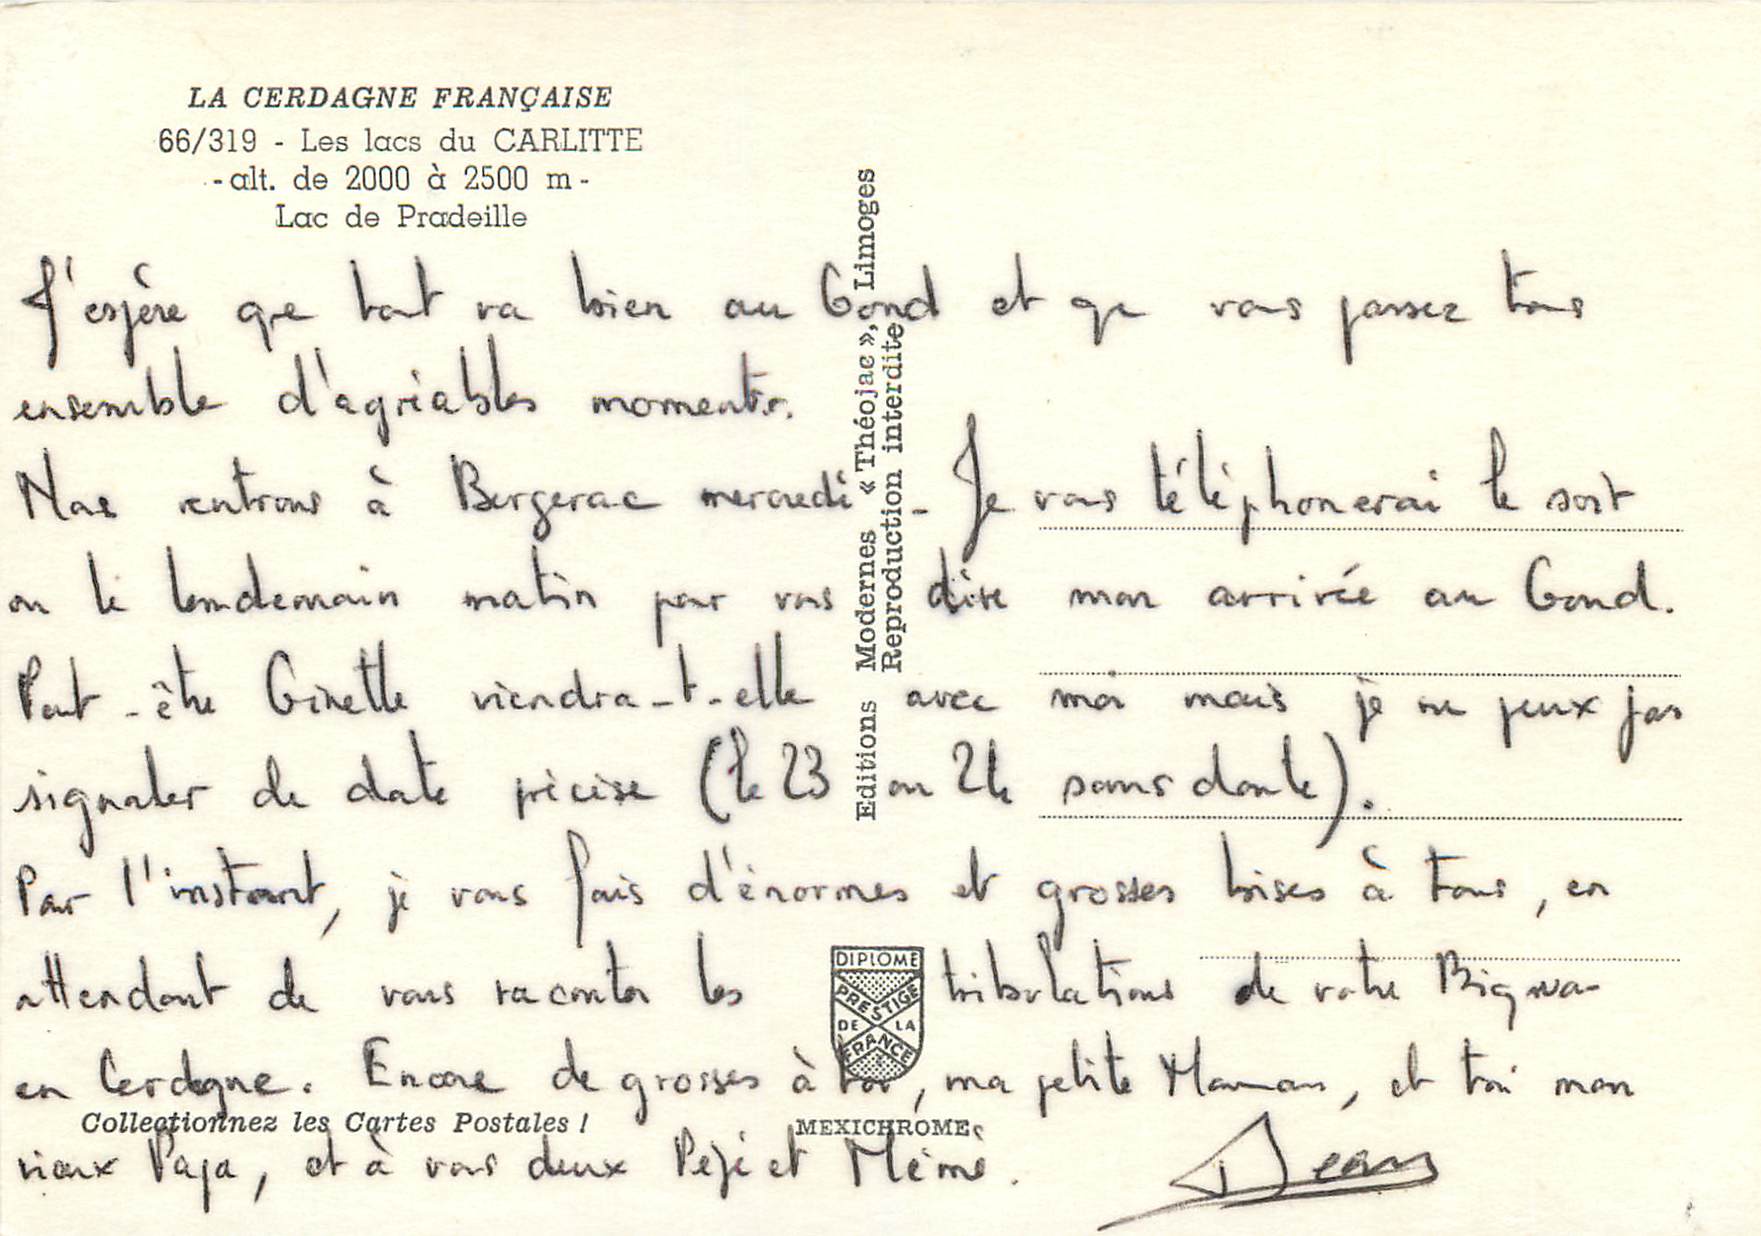 LA CERDAGNE FRANÇAISE
66/319 - Les lacs du CARLITTE
- alt. de 2000 à 2500 m -
Lac de Pradeille
J'espère que tout va bien au Gond et que vous passez tous
ensemble d'agréables moments.
Nous rentrons à Bergerac mercredi - Je vous téléphonerai le soir
ou le lendemain matin pour vous dire mon arrivée au Gond.
Peut-être Ginette viendra-t-elle avec moi mais je ne peux pas
signaler de date précise (le 23 ou 24 sans doute).
Pour l'instant, je vous fais d'énormes et grosses bises à tous, en
attendant de vous raconter les tribulations de votre
en Cerdagne. Encore de grosses à toi, ma petite Maman, et toi mon
vieux Papa, et à vous deux Pépé et Mémé.
Editions Modernes « Théojac », Limoges
Reproduction interdite
DIPLOME
PRESTIGE
DE LA
FRANCE
Collectionnez les Cartes Postales !
MEXICHROME